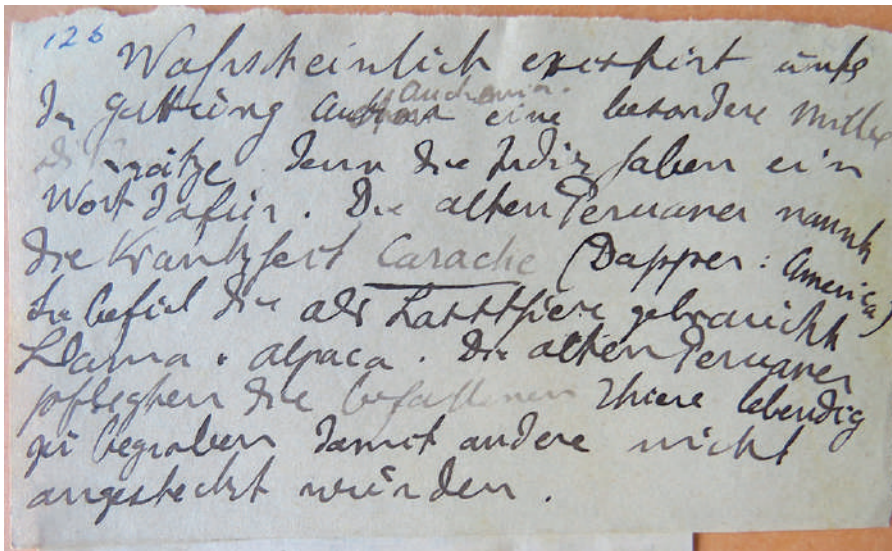 126
Wahrscheinlich existirt auf
der Gattung Auchenia. eine besondere
Krätze denn die Indier haben ein
Wort dafür. Die alten Peruaner nannten
die Krankheit Carache (Dapper: America)
sie befiel die als Lastthiere gebrauchten
Llama u. alpaca. Die alten Peruaner
pflegten die befallenen Thiere lebendig
zu begraben damit andere nicht
angesteckt würden.